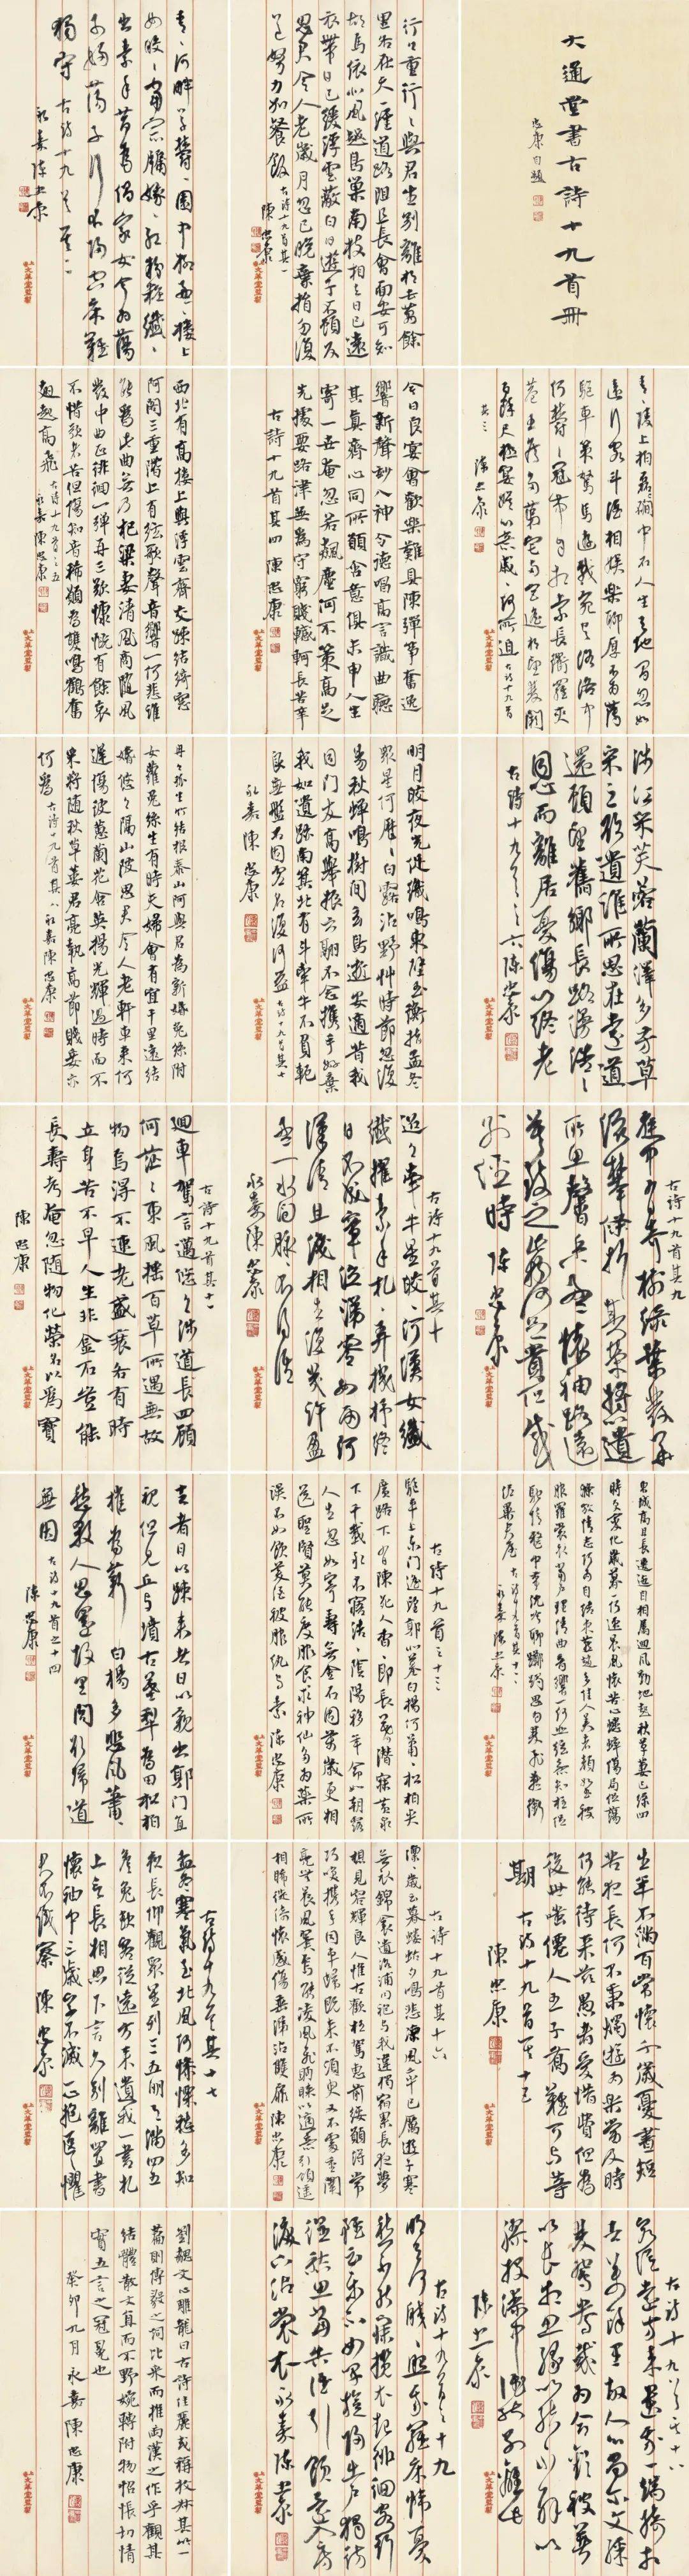 大通堂書古詩十九首冊
忠康自題
行〻重行〻與君生別離相去萬餘
里各在天一涯道路阻且長會面安可知
胡馬依北風越鳥巢南枝相去日已遠
衣帶日已緩浮雲蔽白日遊子不顧反
思君令人老歲月忽已晚棄捐勿復
道努力加餐飯 古詩十九首其一
陳忠康
青〻河畔草鬱〻園中柳盈〻樓上
女皎〻當窗牖娥〻紅粉粧纖〻
出素手昔為倡家女今為蕩
子婦蕩子行不歸空床難
獨守 古詩十九首其二
永嘉陳忠康
青〻陵上柏磊〻澗中石人生天地間忽如
遠行客斗酒相娛樂聊厚不為薄
驅車策駑馬遊戲宛與洛洛中
何鬱〻冠帶自相索長衢羅夾
巷王侯多第宅兩宮遙相望雙闕
百餘尺極宴娛心意戚〻何所迫 古詩十九首
其三 陳忠康
今日良宴會歡樂難具陳彈箏奮逸
響新聲妙入神令德唱高言識曲聽
其真齊心同所願含意俱未申人生
寄一世奄忽若飆塵何不策高足
先據要路津無為守窮賤轗軻長苦辛
古詩十九首其四 陳忠康
西北有高樓上與浮雲齊交疎結綺窗
阿閣三重階上有弦歌聲音響一何悲誰
能為此曲無乃杞梁妻清風商隨風
發中曲正徘徊一彈再三歎慷慨有餘哀
不惜歌者苦但傷知音稀願為雙鳴鶴奮
翅起高飛 古詩十九首之五
永嘉陳忠康
涉江采芙蓉蘭澤多芳草
采之欲遺誰所思在遠道
還顧望舊鄉長路漫浩〻
同心而離居憂傷以終老
古詩十九首之六 陳忠康
明月皎夜光促織鳴東壁玉衡指孟冬
眾星何歷〻白露沾野草時節忽復
易秋蟬鳴樹間玄鳥逝安適昔我
同門友高舉振六翮不念攜手好棄
我如遺跡南箕北有斗牽牛不負軛
良無盤石固虛名復何益
永嘉陳忠康
冉〻孤生竹結根泰山阿與君為新婚兔絲附
女蘿兔絲生有時夫婦會有宜千里遠結
婚悠〻隔山陂思君令人老軒車來何
遲傷彼蕙蘭花含英揚光輝過時而不
采將隨秋草萎君亮執高節賤妾亦
何為 古詩十九首其八永嘉陳忠康
古詩十九首其九
庭中有奇樹綠葉發華
滋攀條折其榮將以遺
所思馨香盈懷袖路遠
莫致之此物何足貴但感
別經時 陳忠康
古詩十九首其十
迢〻牽牛星皎〻河漢女纖
纖擢素手札〻弄機杼終
日不成章泣涕零如雨河
漢清且淺相去復幾許盈
盈一水間脈〻不得語
永嘉陳忠康
古詩十九首其十一
迴車駕言邁悠〻涉道長四顧
何茫〻東風搖百草所遇無故
物焉得不速老盛衰各有時
立身苦不早人生非金石豈能
長壽考奄忽隨物化榮名以為寶
陳忠康
東城高且長逶迤自相屬迴風動地起秋草萋已綠四
時更變化歲暮一何速晨風懷苦心蟋蟀傷局促蕩
滌放情志何為自結束燕趙多佳人美者顏如玉被
服羅裳衣當戶理清曲音響一何悲絃急知柱促
馳情整中帶沈吟聊躑躅思為雙飛燕銜
泥巢君屋 古詩十九首其十二
永嘉陳忠康
古詩十九首之十三
驅車上東門遙望郭北墓白楊何蕭〻松柏夾
廣路下有陳死人杳〻即長暮潛寐黃泉
下千載永不寤浩〻陰陽移年命如朝露
人生忽如寄壽無金石固萬歲更相
送聖賢莫能度服食求神仙多為藥所
誤不如飲美酒被服紈與素 陳忠康
去者日以疎来者日以親出郭門直
視但見丘與墳古墓犁為田松柏
摧為薪 白楊多悲風蕭〻
愁殺人思還故里閭欲歸道
無因 古詩十九首之十四
陳忠康
生年不滿百常懷千歲憂晝短
苦夜長何不秉燭遊為樂當及時
何能待来茲愚者愛惜費但為
後世嗤僊人王子喬難可與等
期 古詩十九首其十五
陳忠康
古詩十九首其十六
凜〻歲云暮螻蛄夕鳴悲涼風率已厲遊子寒
無衣錦衾遺洛浦同袍與我違獨宿累長夜夢
想見容輝良人惟古歡枉駕惠前綏願得常
巧笑攜手同車歸既来不須臾又不處重闈
亮無晨風翼焉能凌風飛眄睞以適意引領遙
相睎徙倚懷感傷垂涕沾雙扉 陳忠康
古詩十九首其十七
孟冬寒氣至北風何慘慄愁多知
夜長仰觀眾星列三五明月滿四五
詹兔缺客從遠方来遺我一書札
上言長相思下言久別離置書
懷袖中三歲字不滅一心抱區〻懼
君不識察 陳忠康
古詩十九首其十八
客從遠方来遺我一端綺相去
萬餘里故人心尚爾文綵
雙鴛鴦裁為合歡被著
以長相思緣以結不解以
膠投漆中誰能別離此
陳忠康
古詩十九首之十九
明月何皎〻照我羅床幃憂
愁不能寐攬衣起徘徊客行
雖云樂不如早旋歸出戶獨彷
徨愁思當告誰引領還入房
淚下沾裳衣 永嘉陳忠康
劉勰文心雕龍曰古詩佳麗或稱枚叔其孤竹一
篇則傅毅之詞比采而推兩漢之作乎觀其
結體散文直而不野婉轉附物怊悵切情
實五言之冠冕也
癸卯九月永嘉陳忠康